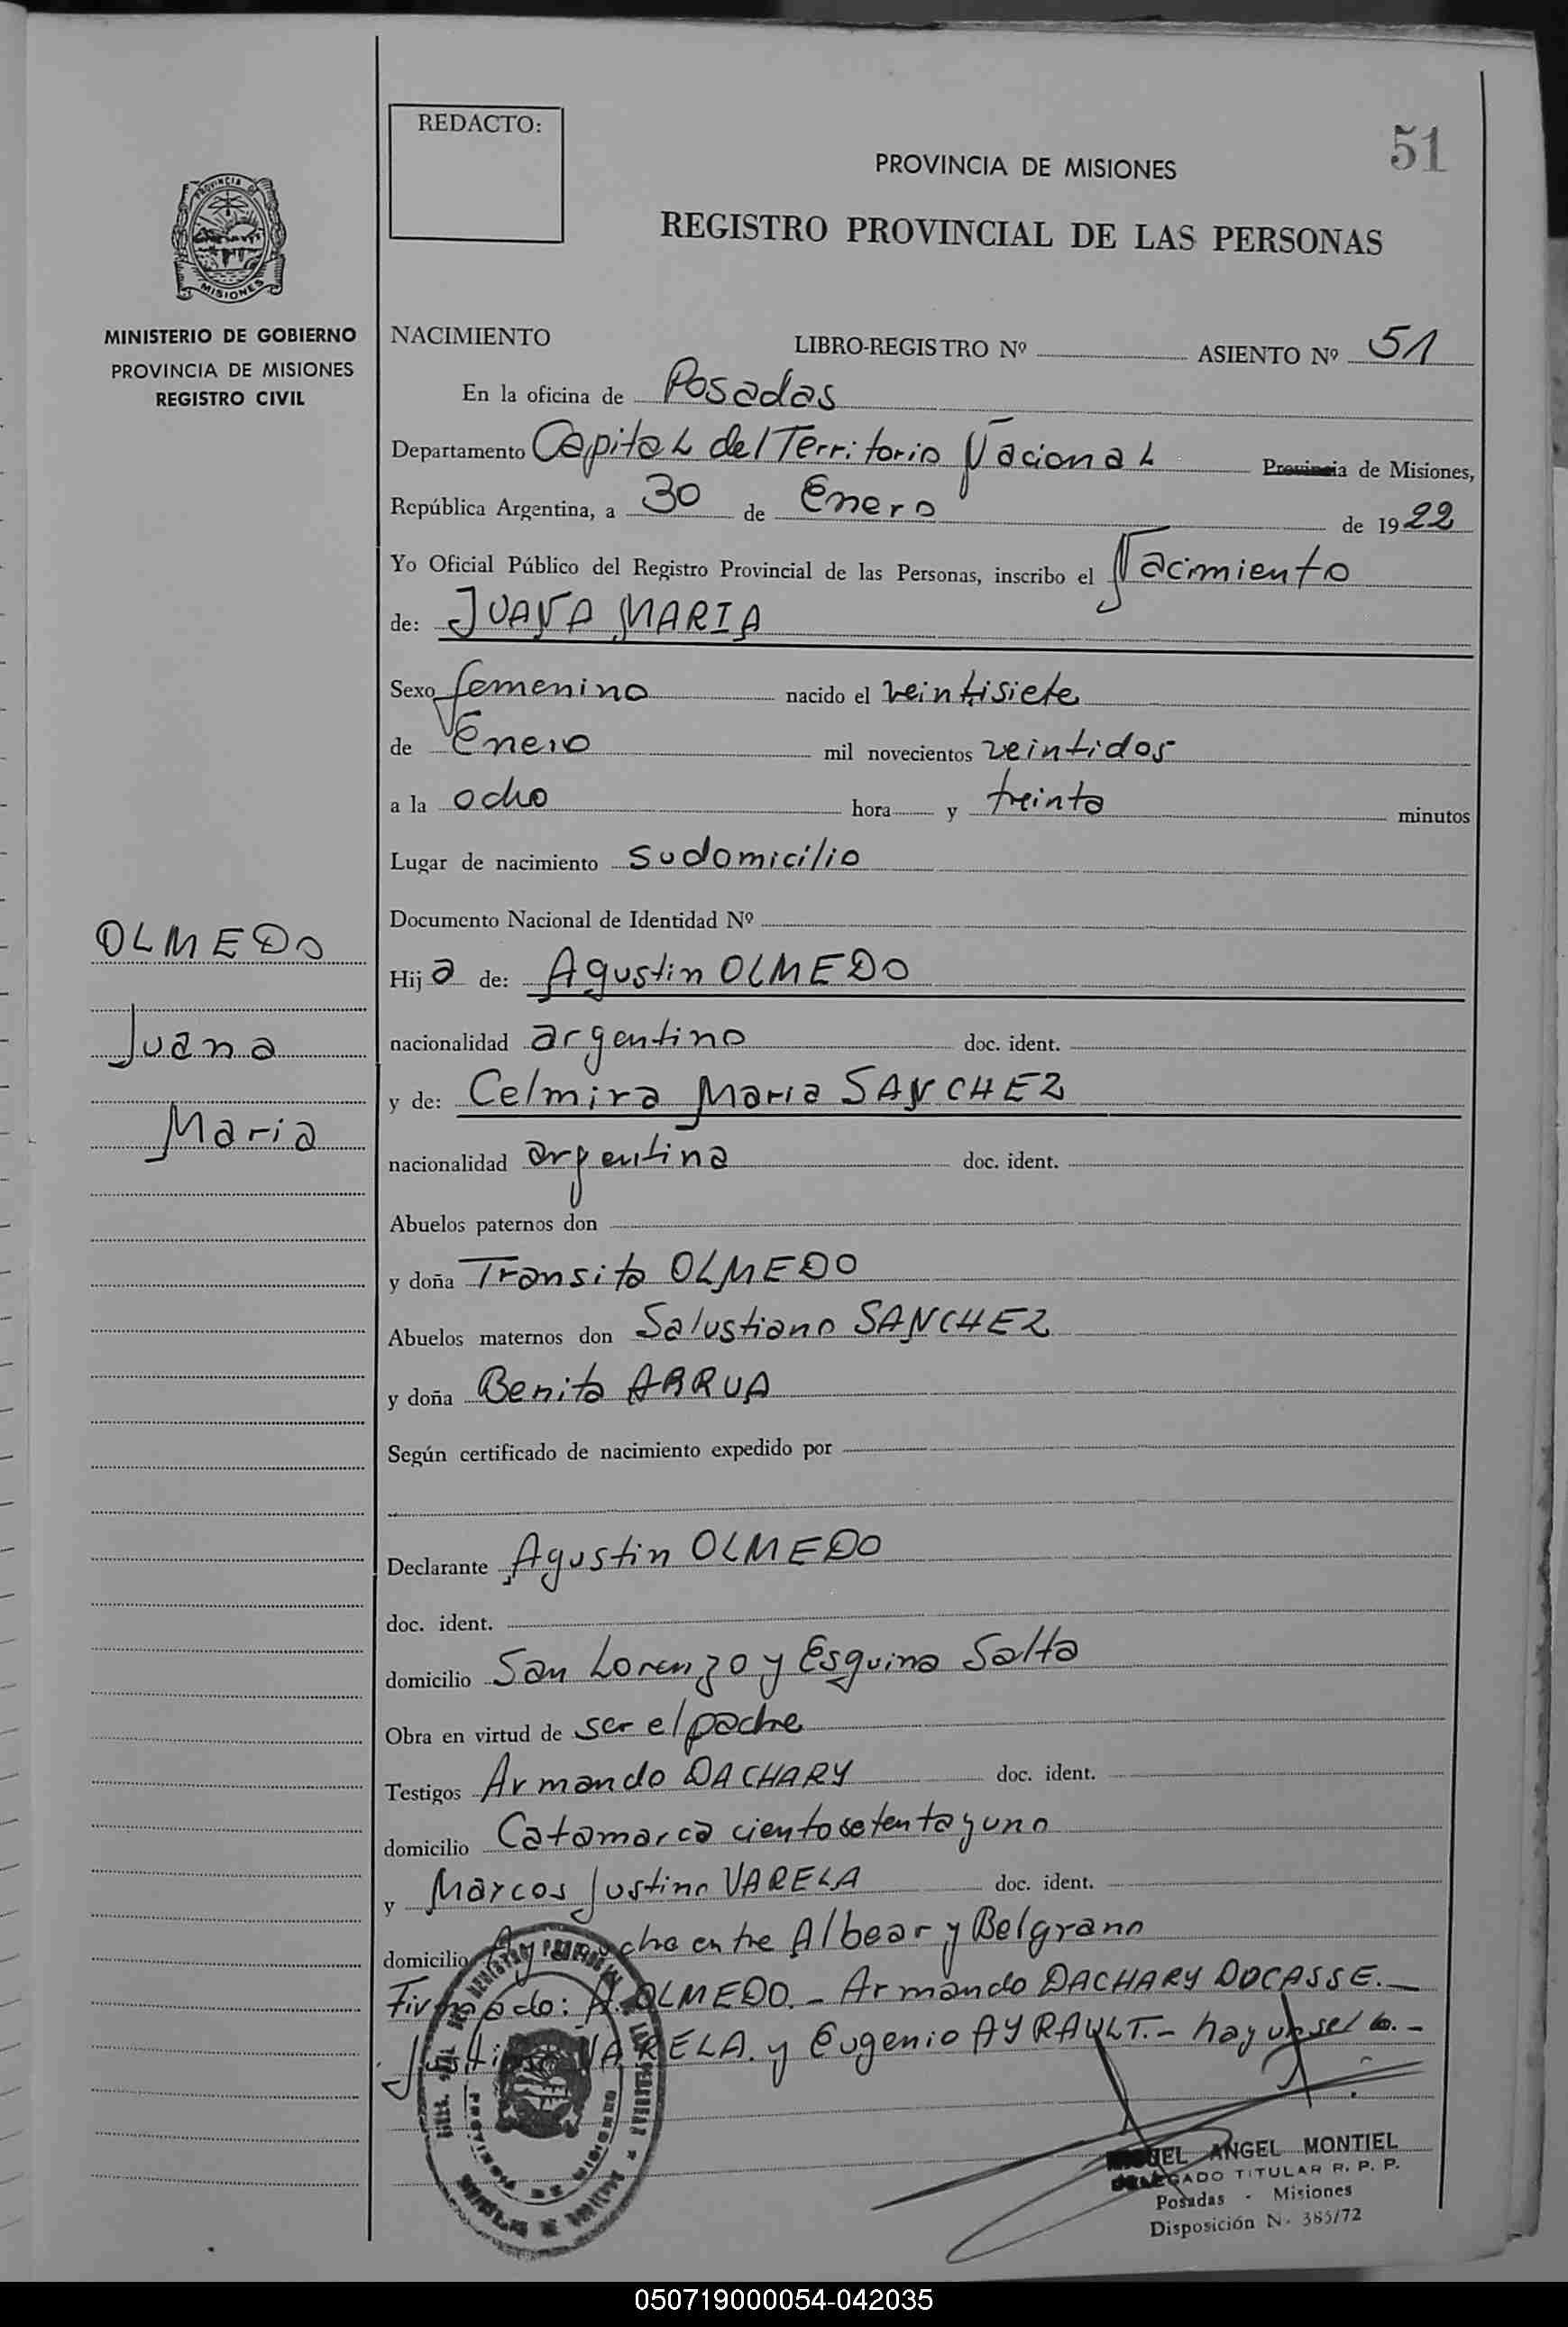 REDACTO:
51
PROVINCIA DE MISIONES
REGISTRO PROVINCIAL DE LAS PERSONAS
PROVINCIA DE
MISIONES
MINISTERIO DE GOBIERNO
PROVINCIA DE MISIONES
REGISTRO CIVIL
NACIMIENTO LIBRO-REGISTRO Nº ASIENTO Nº 51
En la oficina de Posadas
Departamento Capital del Territorio Nacional Provincia de Misiones,
República Argentina, a 30 de Enero de 1922
Yo Oficial Público del Registro Provincial de las Personas, inscribo el Nacimiento
de: JUANA MARIA
Sexo femenino nacido el veintisiete
de Enero mil novecientos veintidos
a la ocho hora y treinta minutos
Lugar de nacimiento su domicilio
Documento Nacional de Identidad Nº
OLMEDO
Juana
Maria
Hija de: Agustin OLMEDO
nacionalidad argentino doc. ident.
y de: Celmira Maria SANCHEZ
nacionalidad argentina doc. ident.
Abuelos paternos don
y doña Transito OLMEDO
Abuelos maternos don Salustiano SANCHEZ
y doña Benita ARRUA
Según certificado de nacimiento expedido por
Declarante Agustin OLMEDO
doc. ident.
domicilio San Lorenzo y Esquina Salta
Obra en virtud de ser el padre
Testigos Armando DACHARY doc. ident.
domicilio Catamarca ciento setenta y uno
y Marcos Justino VARELA doc. ident.
domicilio Ayacucho entre Albear y Belgrano
Firmado: A. OLMEDO.- Armando DACHARY DOCASSE.-
Justino VARELA. y Eugenio AYRAULT.- hay un sello.-
MIGUEL ANGEL MONTIEL
DELEGADO TITULAR R. P. P.
Posadas - Misiones
Disposición N. 385/72
050719000054-042035